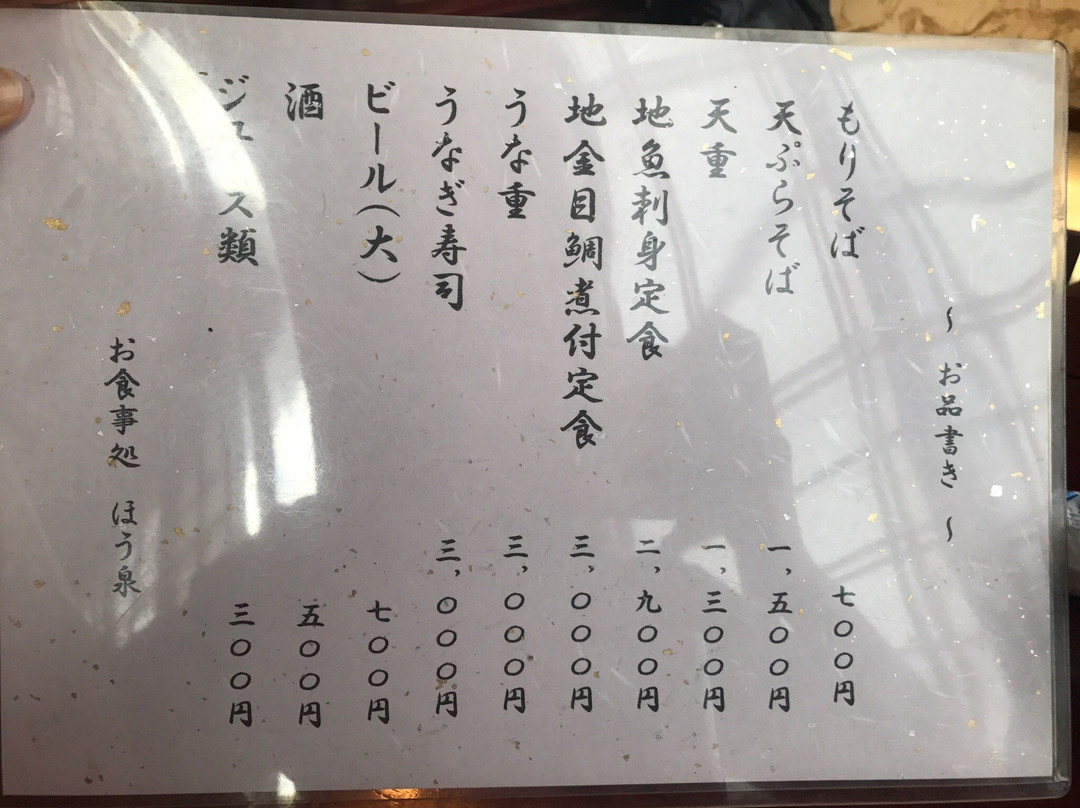 ～ お品書き ～
もりそば 七〇〇円
天ぷらそば 一、五〇〇円
天重 一、三〇〇円
地魚刺身定食 二、九〇〇円
地金目鯛煮付定食 三、〇〇〇円
うな重 三、〇〇〇円
うなぎ寿司 三、〇〇〇円
ビール(大) 七〇〇円
酒 五〇〇円
ジュース類 三〇〇円
お食事処 ほう泉